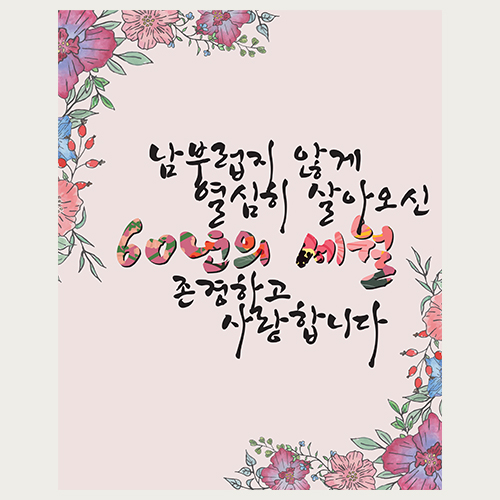 남부럽지 않게
열심히 살아오신
60년의 세월
존경하고
사랑합니다